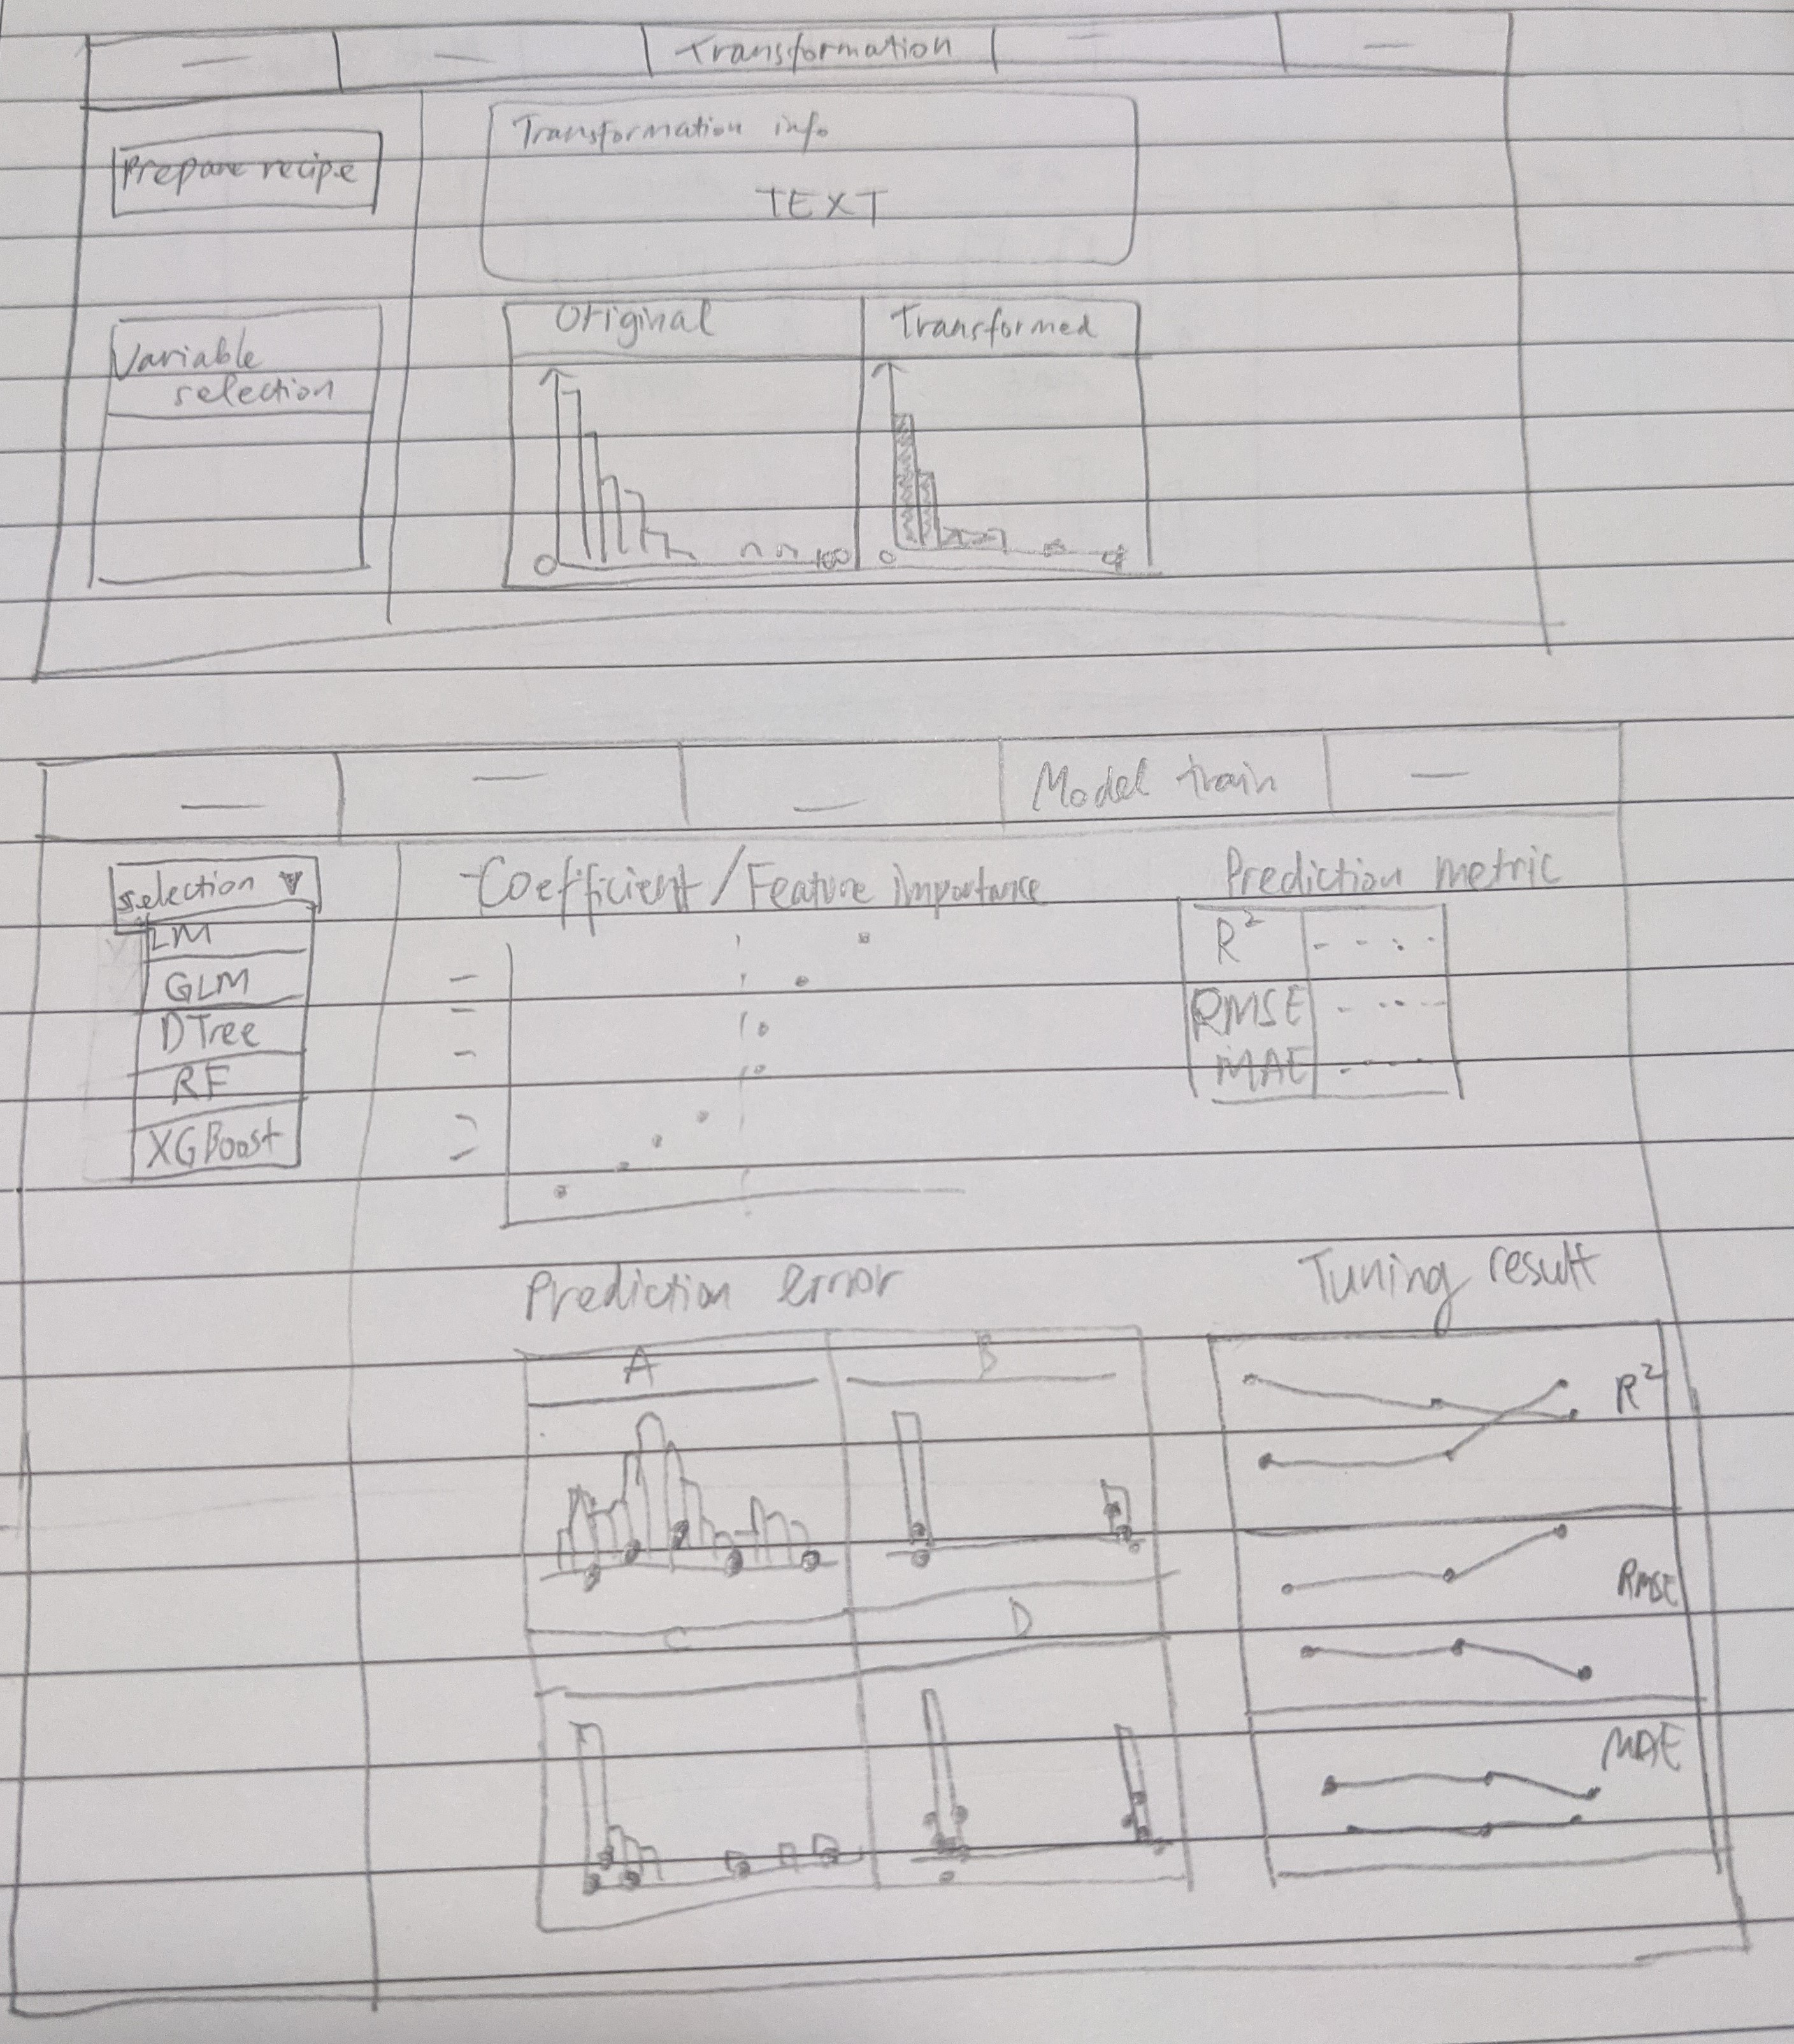 Transformation
Prepare recipe
Transformation info
TEXT
Variable
selection
Original
Transformed
0
100
0
4
Model train
selection
LM
GLM
DTree
RF
XGBoost
Coefficient/Feature importance
Prediction metric
R²
RMSE
MAE
Prediction error
A
B
C
D
Tuning result
R²
RMSE
MAE